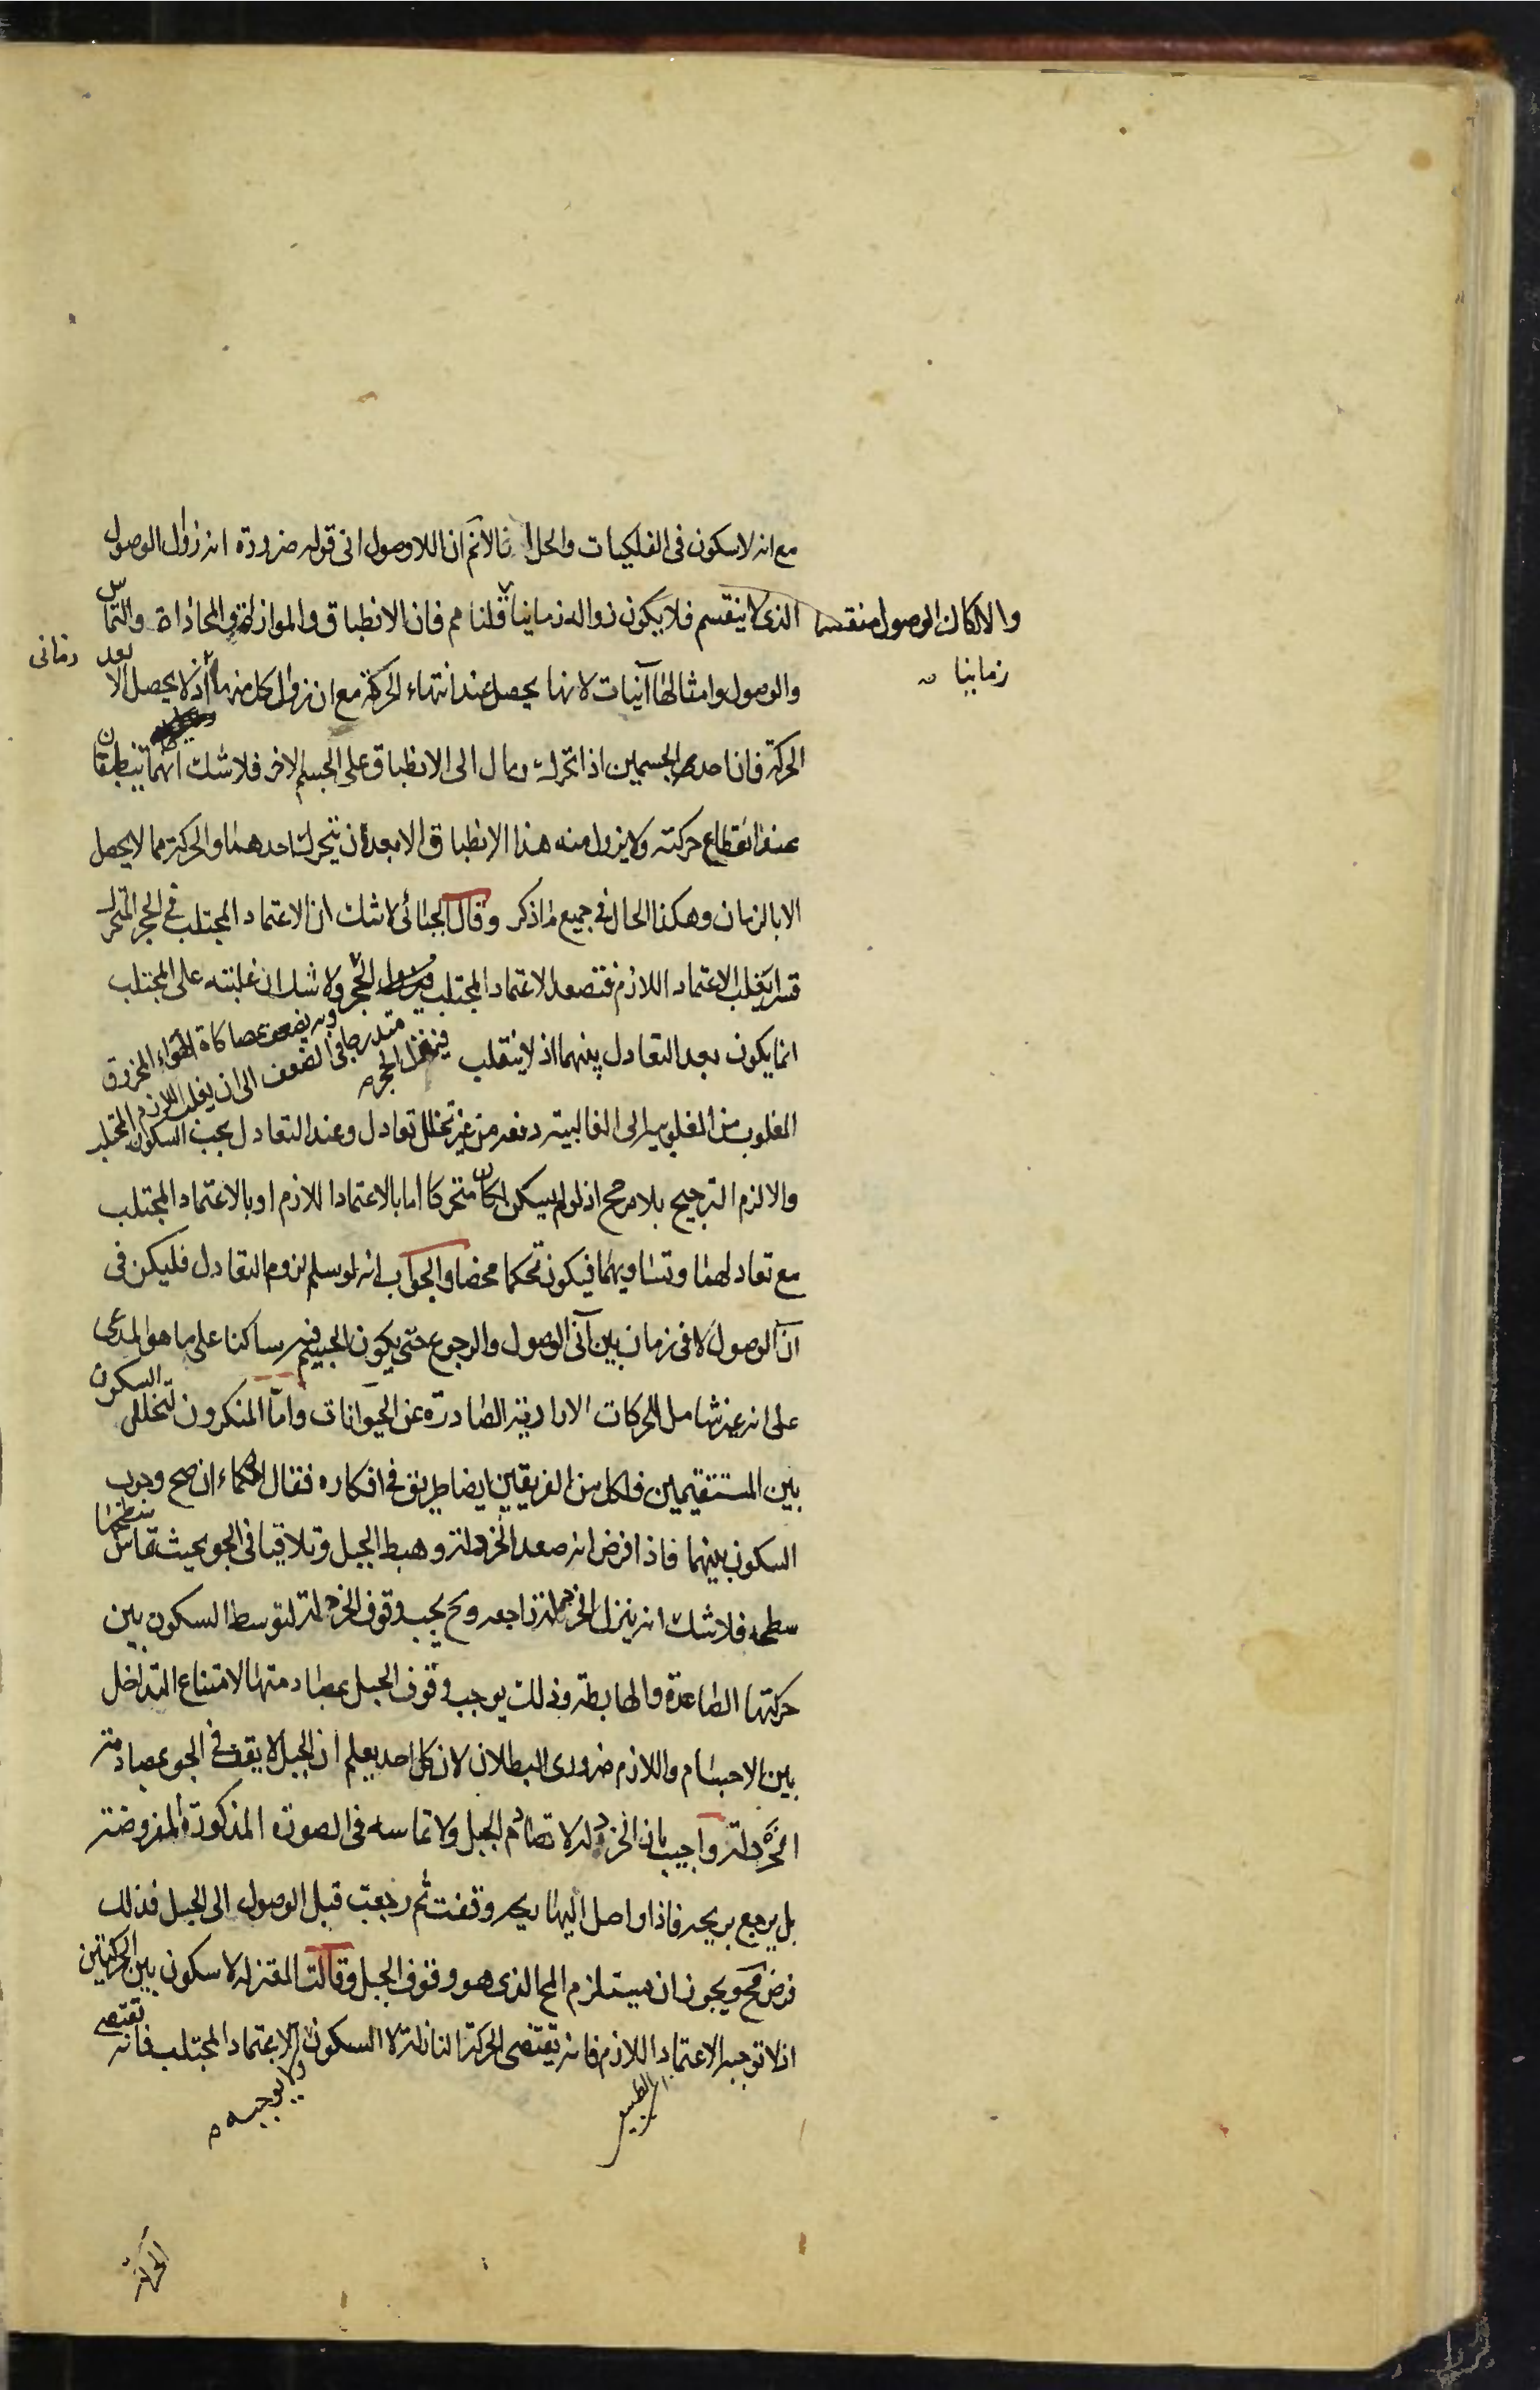 مع انه لا سكون فى الفلكيات والحل انا لانم ان اللاوصول انى قوله ضرورة انه زوال الوصول
الذى لا ينقسم فلا يكون زواله زمانيا قلنا مم فان الانطباق والموازاة والمحاذاة والتماس
والا لكان الوصول منقسما
زمانيا
والوصول وامثالها آنيات لانها يحصل عند انتهاء الحركة مع ان زوال كل منها زمانى اذ لا يحصل الا بعد
الحركة فان احدى الجسمين اذا تحرك ومال الى الانطباق على الجسم الاخر فلا شك انهما ينطبقان
عند انقطاع حركته ولا يزول منه هذا الانطباق الا بعد ان يتحرك احدهما والحركة مما لا يحصل
الا بالزمان وهكذا الحال فى جميع ما ذكر وقال الجبائى لا شك ان الاعتماد المجتلب فى الحجر المتحرك
قسرا يغلب الاعتماد اللازم فتصعد الاعتماد المجتلب الحجر ولا شك ان غلبته على المجتلب
متدرجا فى الضعف الى ان يغلب اللازم المجتلب
فينزل الحجر
انما يكون بعد التعادل بينهما اذ لا ينقلب
المغلوب من المغلوبية الى الغالبية دفعه من غير تخلل تعادل وعند التعادل يجب السكون
والا لزم الترجيح بلا مرجح اذ لو لم يسكن لكان متحركا اما بالاعتماد اللازم او بالاعتماد المجتلب
مع تعادلهما وتساويهما فيكون تحكما محضا والجواب انه لو سلم لزوم التعادل فليكن فى
آن الوصول لا فى زمان بين آنى الوصول والرجوع حتى يكون الجسم فيه ساكنا على ما هو المدعى
على انه غير شامل للحركات الارادية الصادرة عن الحيوانات واما المنكرون لتخلل السكون
بين المستقيمين فلكل من الفريقين ايضا طريق فى افكاره فقال الحكماء ان صح وجوب
السكون بينهما فاذا فرض انه صعد الخردلة وهبط الجبل وتلاقيا فى الجو بحيث تماس سطحها
سطحه فلا شك انه ينزل الخردلة راجعه وح يجب وقوف الخردلة لتوسط السكون بين
حركتها الصاعدة والهابطة وذلك يوجب وقوف الجبل بمصادمتها لامتناع التداخل
بين الاجسام واللازم ضرورى البطلان لان كل احد يعلم ان الجبل لا يقف فى الجو بمصادمة
الخردلة واجيب بان الخردلة لا تصادم الجبل ولا تماسه فى الصورة المذكورة المفروضة
بل يرجع بريحه فاذا واصل اليها ريحه وقفت ثم رجعت قبل الوصول الى الجبل فذلك
فرض مح ويجوز ان يستلزم المح الذى هو وقوف الجبل وقالت المعتزلة لا سكون بين الحركتين
اذ لا توجبه الاعتماد اللازم فانه يقتضى الحركة النازلة لا السكون ولا الاعتماد المجتلب فانه تقتضى
ولا يوجبه
الحركة